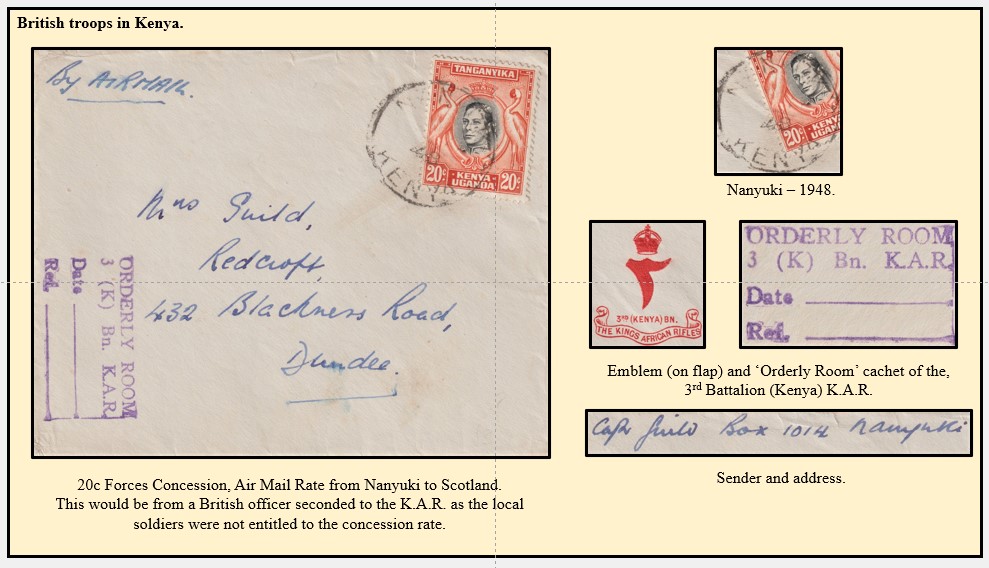 British troops in Kenya.
By AIRMAIL.
TANGANYIKA
20c KENYA UGANDA 20c
48
KENYA
Mrs Guild,
Redcroft,
432 Blackness Road,
Dundee.
ORDERLY ROOM
3 (K) Bn. K.A.R.
Date
Ref.
20c Forces Concession, Air Mail Rate from Nanyuki to Scotland.
This would be from a British officer seconded to the K.A.R. as the local
soldiers were not entitled to the concession rate.
20c KENYA
UGAN
48
KENYA
Nanyuki – 1948.
3RD (KENYA) BN.
THE KINGS AFRICAN RIFLES
ORDERLY ROOM
3 (K) Bn. K.A.R.
Date
Ref.
Emblem (on flap) and ‘Orderly Room’ cachet of the,
3rd Battalion (Kenya) K.A.R.
Capt Guild Box 1014 Nanyuki
Sender and address.